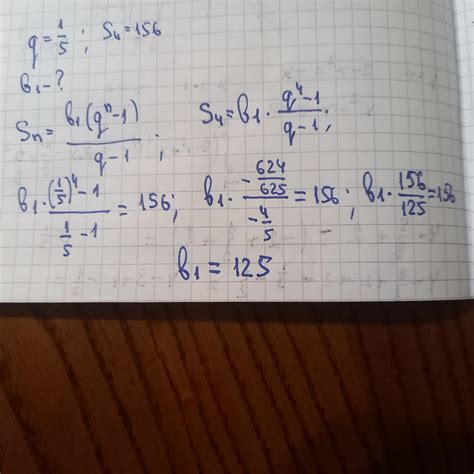 q = 1/5 ; S₄ = 156
b₁ - ?
Sₙ = b₁(qⁿ-1)/(q-1) ; S₄ = b₁ · (q⁴-1)/(q-1) ;
b₁ · ((1/5)⁴ - 1)/(1/5 - 1) = 156 ; b₁ · (-624/625)/(-4/5) = 156 ; b₁ · 156/125 = 156
b₁ = 125